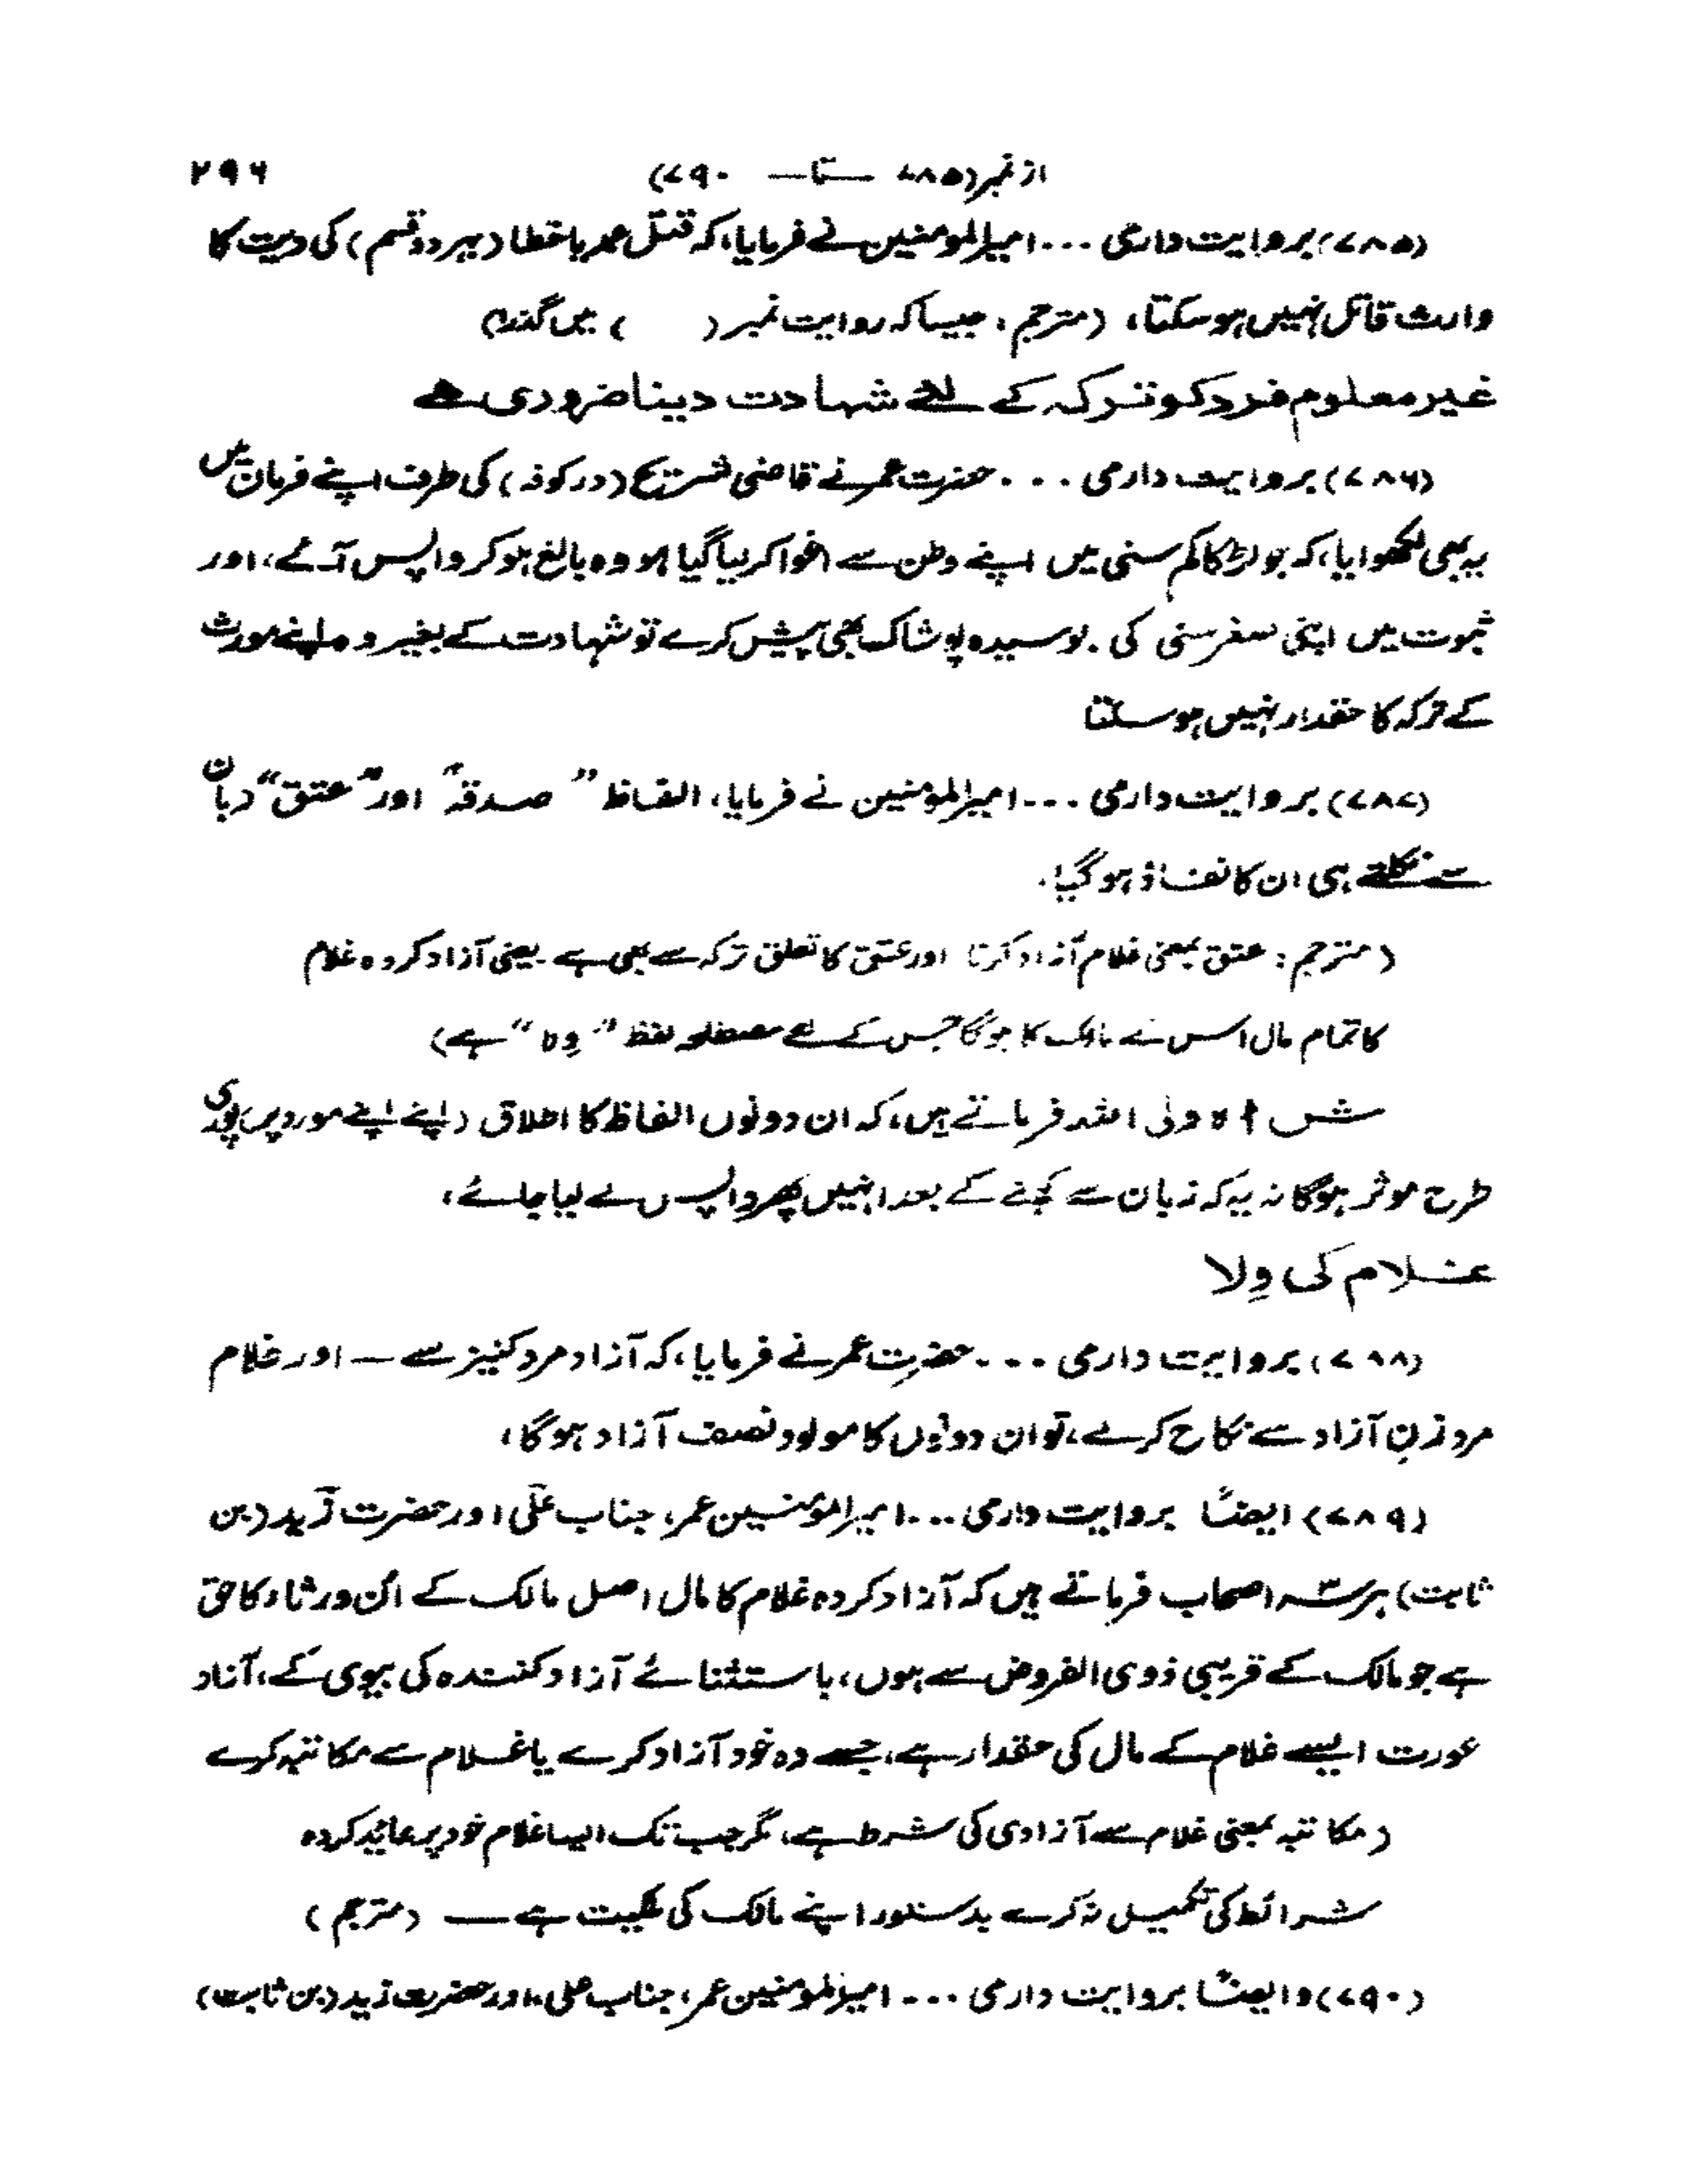 از نمبر (۷۸۵ — تا — ۷۹۰) ۲۹۶
(۷۸۵) بروایت دارمی ... امیرالمومنین نے فرمایا، کہ قتل عمد یا خطا (بہر دو قسم) کی دیت کا
وارث قاتل نہیں ہو سکتا، (مترجم: جیسا کہ روایت نمبر ( ) میں گذرا)
غیر معلوم فرد کو ترکہ کے لئے شہادت دینا ضروری ہے
(۷۸۶) بروایت دارمی ... حضرت عمر نے قاضی شریح (در کوفہ) کی طرف اپنے فرمان میں
یہ بھی لکھوایا، کہ جو لڑکا کم سنی میں اپنے وطن سے اغوا کر لیا گیا ہو وہ بالغ ہو کر واپس آئے، اور
ثبوت میں اپنی صغر سنی کی بوسیدہ پوشاک بھی پیش کرے تو شہادت کے بغیر وہ اپنے مورث
کے ترکہ کا حقدار نہیں ہو سکتا
(۷۸۷) بروایت دارمی ... امیرالمؤمنین نے فرمایا، الفاظ ”صدقہ“ اور ”عتق“ زبان
سے نکلتے ہی ان کا نفاذ ہو گیا.
(مترجم: عتق بمعنی غلام آزاد کرنا اور عتق کا تعلق ترکہ سے بھی ہے۔ یعنی آزاد کردہ غلام
کا تمام مال اس کے مالک کا ہو گا جس کے لئے مصطلحہ لفظ ”وِلا“ ہے)
شاہ ولی اللہ فرماتے ہیں، کہ ان دونوں الفاظ کا اطلاق (اپنے اپنے مورد پر) پوری
طرح موثر ہو گا نہ یہ کہ زبان سے کہنے کے بعد انہیں پھر واپس لے لیا جائے،
غلام کی وِلا
(۷۸۸) بروایت دارمی ... حضرت عمر نے فرمایا، کہ آزاد مرد کنیز سے — اور غلام
مرد زنِ آزاد سے نکاح کرے، تو ان دونوں کا مولود نصف آزاد ہو گا،
(۷۸۹) ایضاً بروایت دارمی ... امیرالمؤمنین عمر، جناب علی اور حضرت زید (بن
ثابت) ہر سہ اصحاب فرماتے ہیں کہ آزاد کردہ غلام کا مال اصل مالک کے اُن ورثاء کا حق
ہے جو مالک کے قریبی ذوی الفروض سے ہوں، باستثنائے آزاد کنندہ کی بیوی کے، آزاد
عورت ایسے غلام کے مال کی حقدار ہے، جسے وہ خود آزاد کرے یا غلام سے مکاتبہ کرے
(مکاتبہ بمعنی غلام سے آزادی کی شرط ہے، مگر جب تک ایسا غلام خود پر عاید کردہ
شرائط کی تکمیل نہ کرے بدستور اپنے مالک کی ملکیت ہے — (مترجم)
(۷۹۰) و ایضاً بروایت دارمی ... امیرالمومنین عمر، جناب علی، اور حضرت زید (بن ثابت)